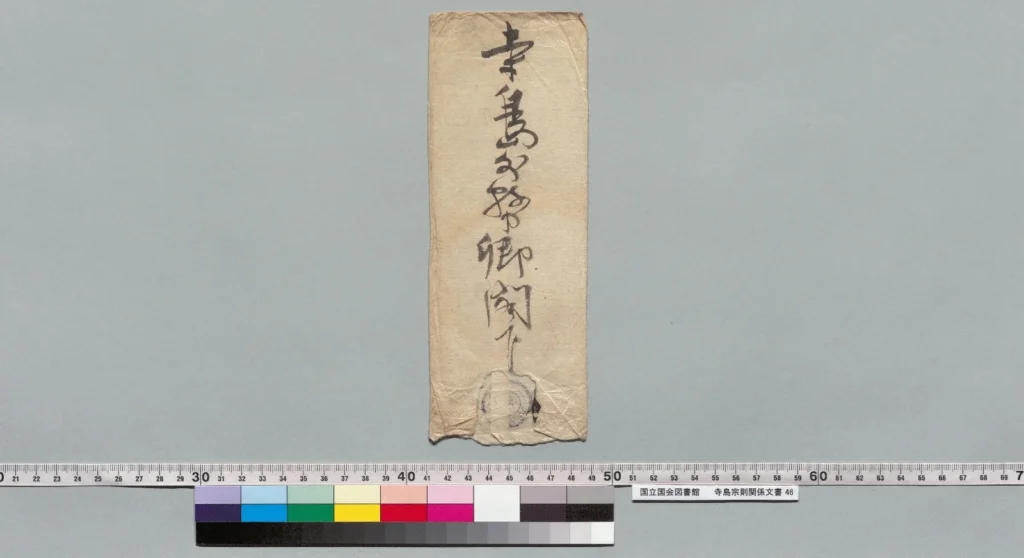 寺島外務卿閣下
0 21 22 23 24 25 26 27 28 29 30 31 32 33 34 35 36 37 38 39 40 41 42 43 44 45 46 47 48 49 50 51 52 53 54 55 56 57 58 59 60 61 62 63 64 65 66 67 68 69 7
国立国会図書館 寺島宗則関係文書 46